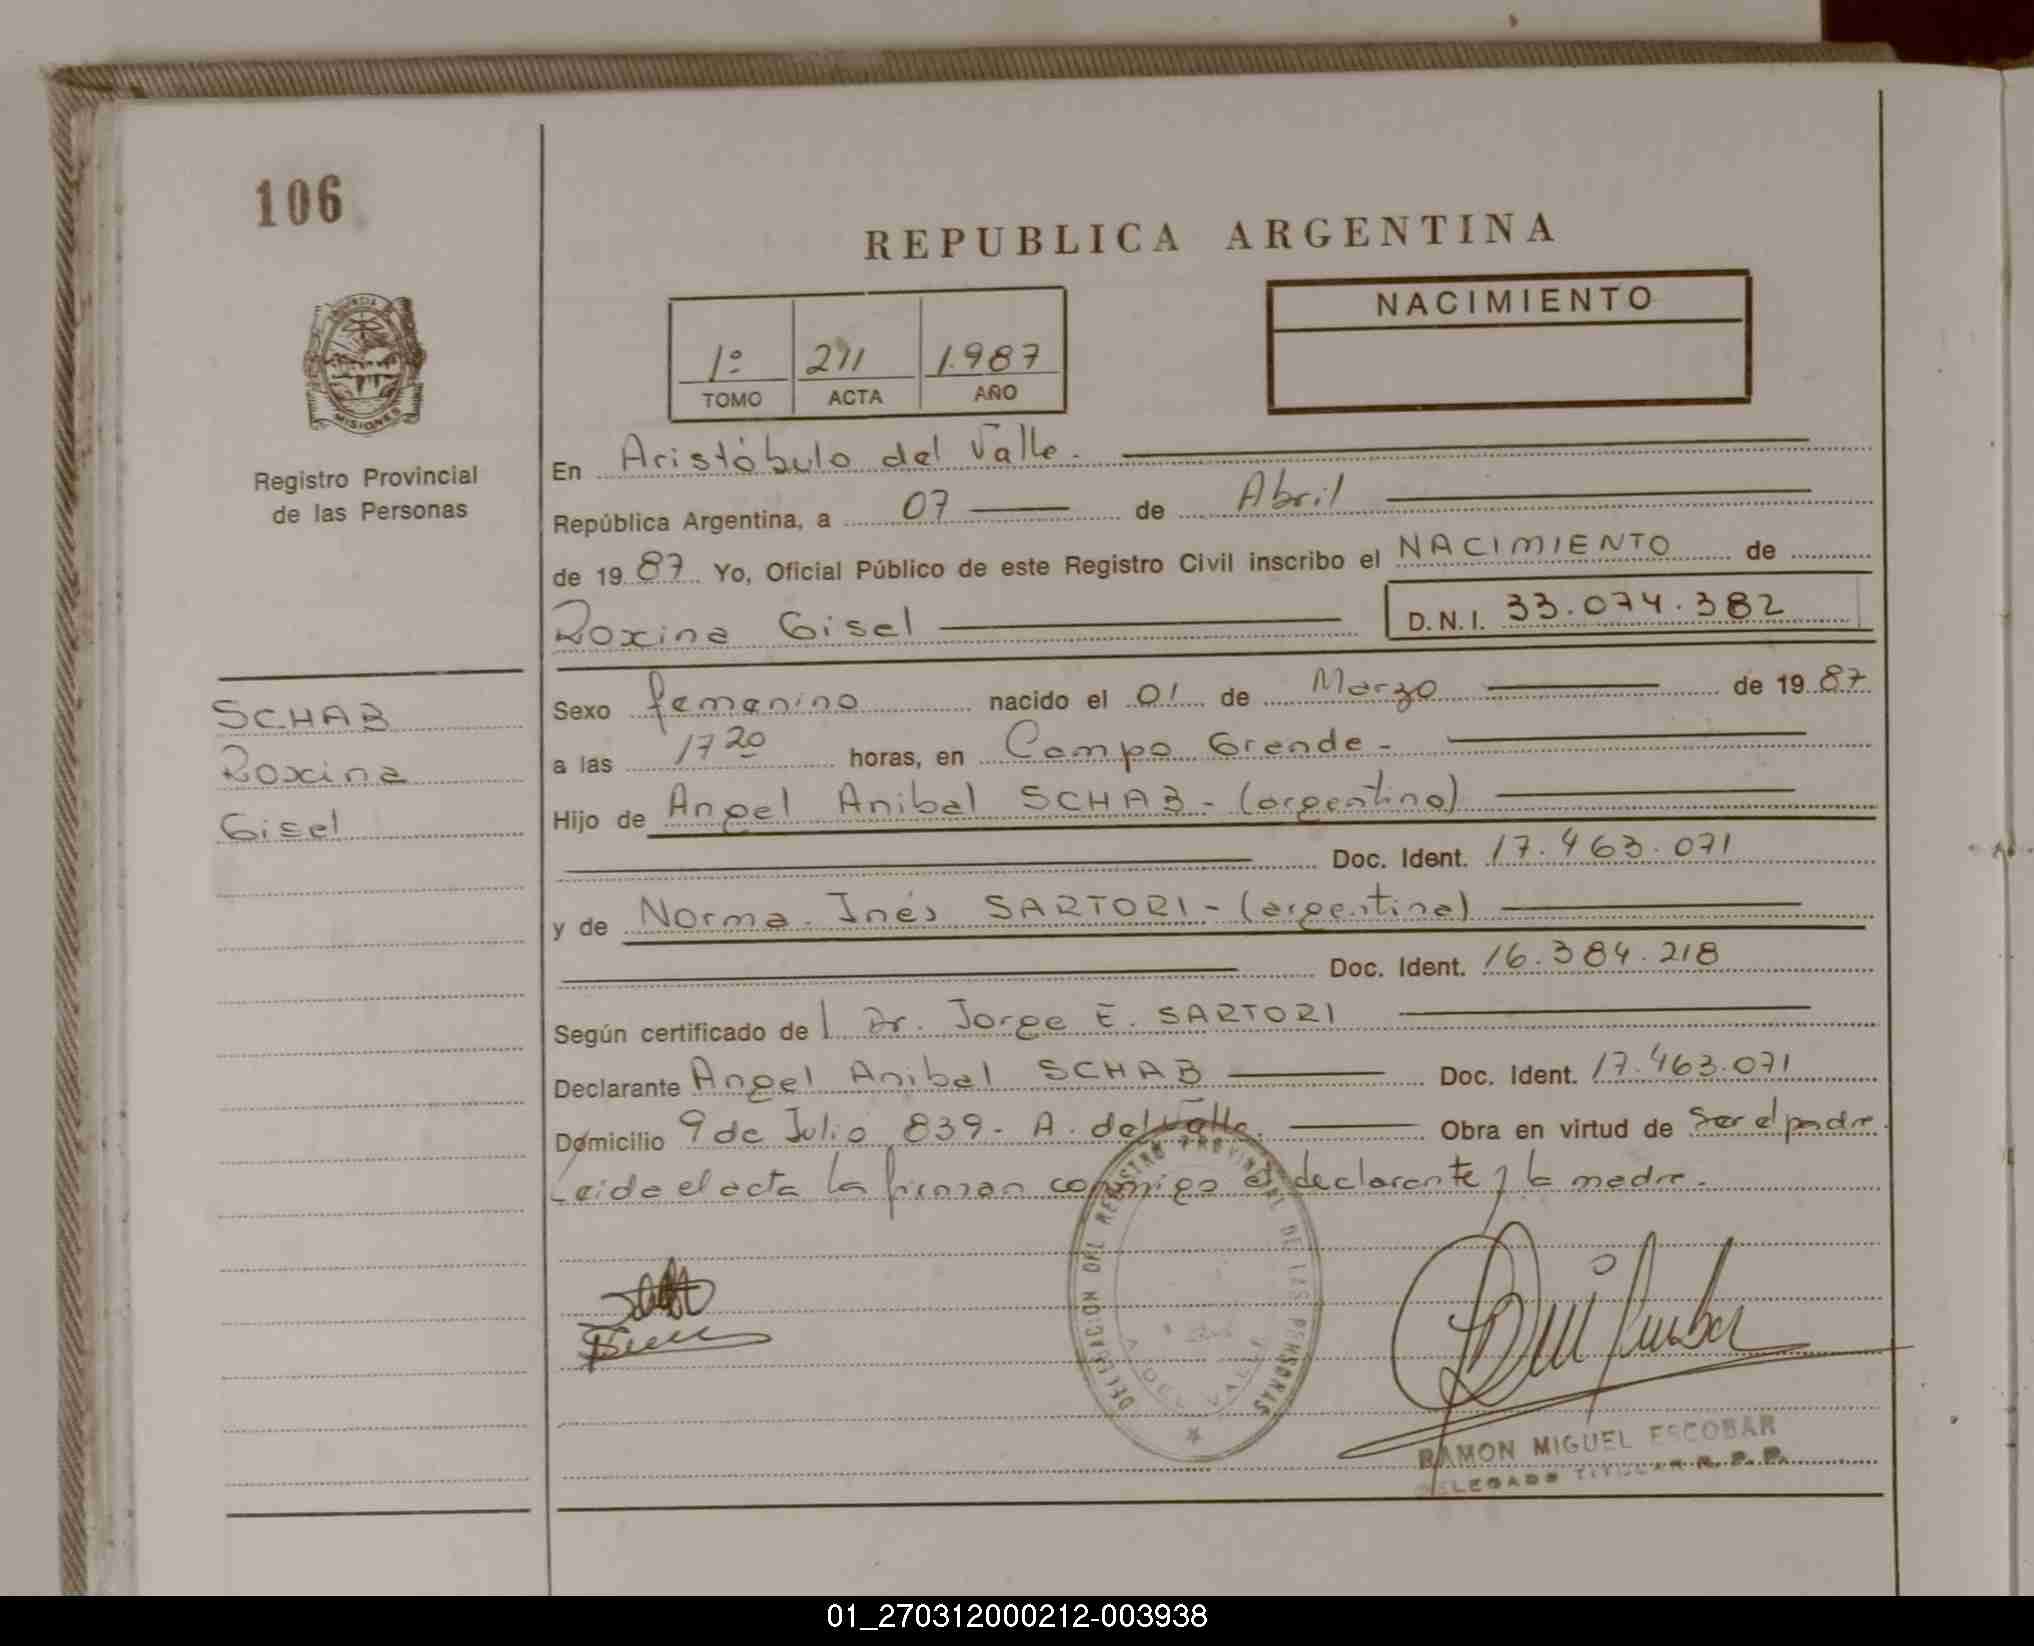 106
REPUBLICA ARGENTINA
NACIMIENTO
1º 211 1.987
TOMO ACTA AÑO
PROVINCIA
MISIONES
Registro Provincial
de las Personas
En Aristóbulo del Valle.
República Argentina, a 07 de Abril
de 1987 Yo, Oficial Público de este Registro Civil inscribo el NACIMIENTO de
Roxina Gisel D.N.I. 33.074.382
SCHAB
Roxina
Gisel
Sexo femenino nacido el 01 de Marzo de 1987
a las 17 20 horas, en Campo Grande -
Hijo de Angel Anibal SCHAB - (argentino)
Doc. Ident. 17.463.071
y de Norma Inés SARTORI - (argentina)
Doc. Ident. 16.384.218
Según certificado de l Dr. Jorge E. SARTORI
Declarante Angel Anibal SCHAB Doc. Ident. 17.463.071
Domicilio 9 de Julio 839 - A. del Valle. Obra en virtud de Ser el padre.
Leida el acta la firman conmigo el declarante y la madre.
DELEGACION DEL REGISTRO PROVINCIAL DE LAS PERSONAS
A. DEL VALLE
RAMON MIGUEL ESCOBAR
DELEGADO TITULAR R. P. P.
01_270312000212-003938